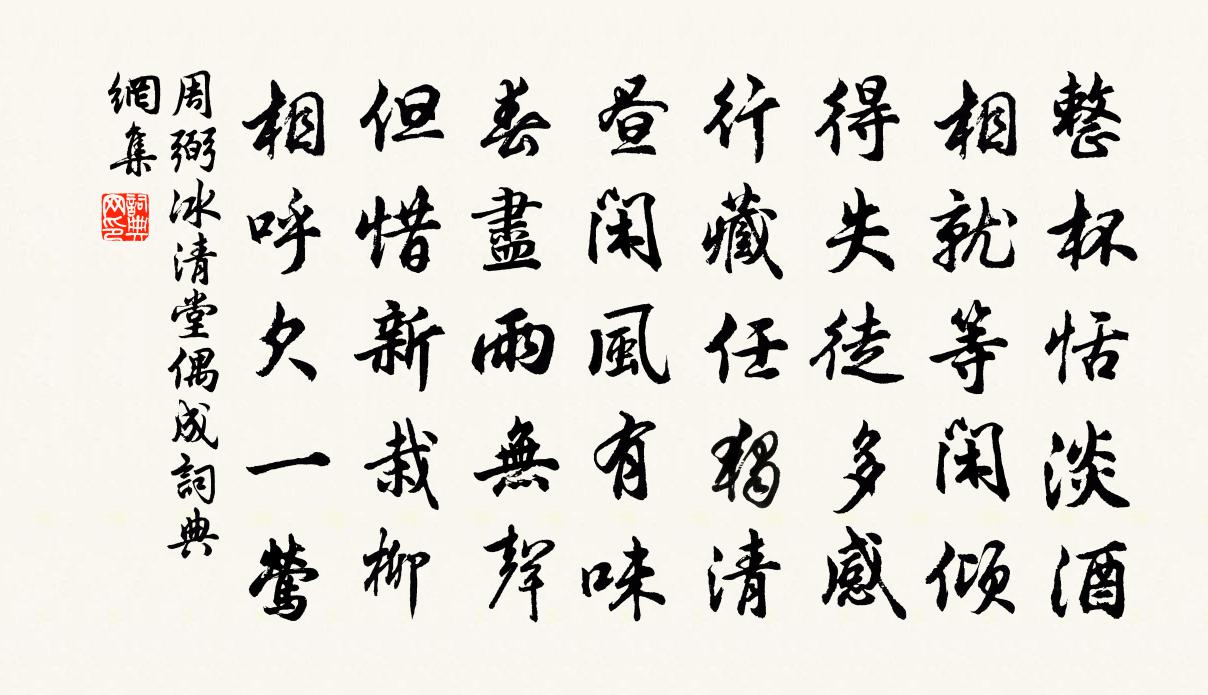 整杯恬淡酒
相就等閑傾
得失徒多感
行藏任獨清
昼閑風有味
春盡雨無聲
但惜新栽柳
相呼欠一鶯
周弼冰清堂偶成詞典
網集
詞典
网印